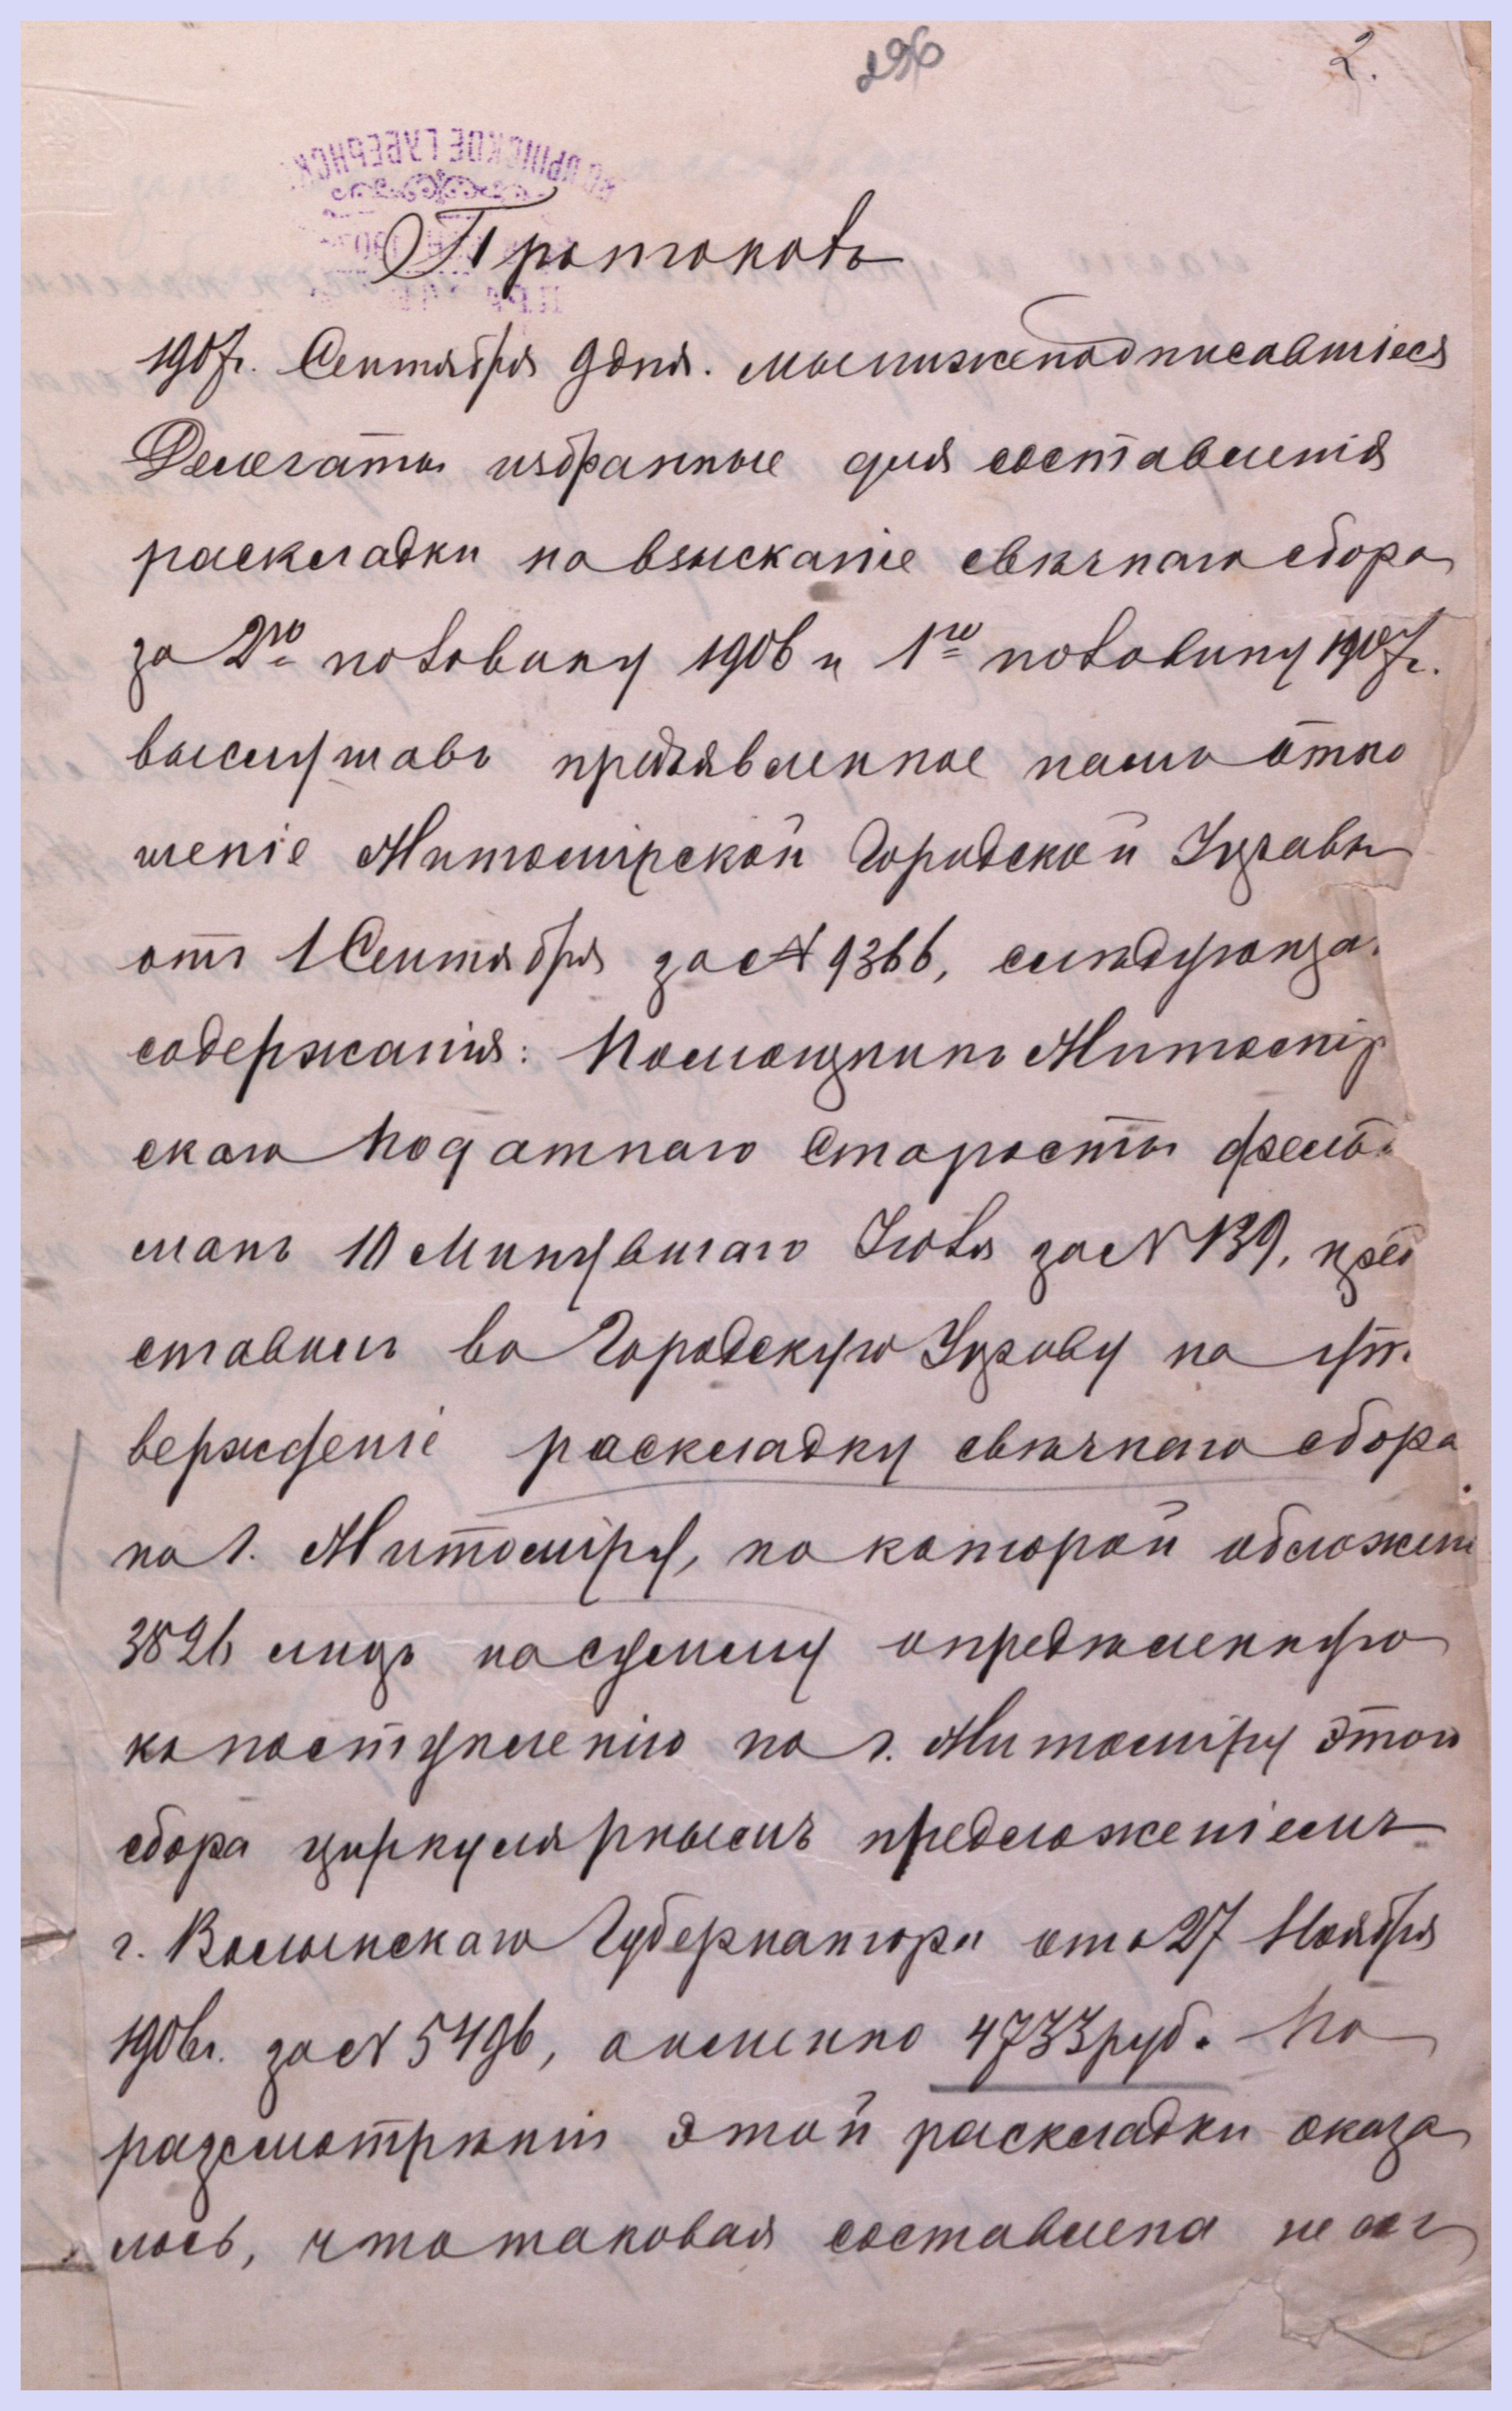 296
2.
Протоколъ
1907г. Сентября 9 дня. мы нижеподписавшіеся
Делегаты избранные для составленія
раскладки на взысканіе свѣчнаго сбора
за 2ю половину 1906 и 1ю половину 1907г.
выслушавъ предъявленное намъ отно
шеніе Житомірской Городской Управы
отъ 1 Сентября за № 9366, слѣдующа
содержанія: Помощникъ Житомір
скаго Податнаго Старосты
манъ 10 Минувшаго Іюля за № 139, пред
ставилъ въ Городскую Управу на ут
вержденіе раскладку свѣчнаго сбора
по г. Житоміру, по которой обложены
3826 лицъ на сумму опредѣленную
къ поступленію по г. Житоміру этого
сбора циркулярнымъ предложеніемъ
г. Волынскаго Губернатора отъ 27 Ноября
1906г. за № 5496, а именно 4733 руб. По
разсмотрѣніи этой раскладки оказа
лось, что таковая составлена не